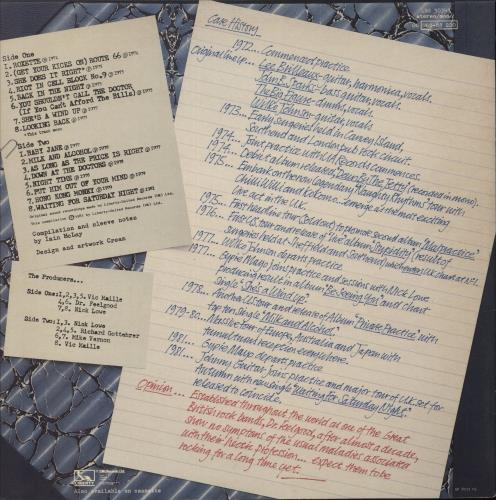 Side One
1. ROXETTE © 1975
2. (GET YOUR KICKS ON) ROUTE 66 © 1974
3. SHE DOES IT RIGHT* © 1975
4. RIOT IN CELL BLOCK No.9 © 1975
5. BACK IN THE NIGHT © 1975
6. YOU SHOULDN'T CALL THE DOCTOR
(If You Can't Afford The Bills) © 1975
7. SHE'S A WIND UP © 1977
8. LOOKING BACK © 1977
*This track mono
Side Two
1. BABY JANE © 1977
2. MILK AND ALCOHOL © 1978
3. AS LONG AS THE PRICE IS RIGHT © 1979
4. DOWN AT THE DOCTORS © 1978
5. NIGHT TIME © 1978
6. PUT HIM OUT OF YOUR MIND © 1979
7. HONG KONG MONEY © 1979
8. WAITING FOR SATURDAY NIGHT © 1981
Compilation and sleeve notes
by Iain McLay
Design and artwork Cream
The Producers...
Side One: 1,2,3,5. Vic Maille
4,6. Dr. Feelgood
7,8. Nick Lowe
Side Two: 1,3. Nick Lowe
2,4,5. Richard Gottehrer
6,7. Mike Vernon
8. Vic Maille
LIBERTY
Also available on cassette
stereo/mono
Case History
1972... Commenced practice.
Original line up... Lee Brilleaux - guitar, harmonica, vocals.
John B. Sparks - bass guitar, vocals.
The Big Figure - drums, vocals.
Wilko Johnson - guitar, vocals.
1973... Early surgeries held in Canvey Island,
Southend and London pub rock circuit.
1974... Joint practice with UA Records commences.
1974... Debut album released, "Down By The Jetty" (recorded in mono).
1975... Embark on the now legendary "Naughty Rhythms" tour with
Chilli Willi and Kokomo... emerge as the most exciting
live act in the U.K.
1975... First headline tour (sold out) to promote second album "Malpractice".
1976... First U.S. tour and release of the album "Stupidity" (result of
surgeries held at Sheffield and Southend) which enters U.K. chart at No.1.
1977... Wilko Johnson departs practice.
1977... Gypie Mayo joins practice and sessions with Nick Lowe
producing result in album "Be Seeing You" and chart
single "She's a Wind Up".
1978... Another U.S. tour and release of Album "Private Practice" with
top ten single "Milk and Alcohol".
1979-80... Massive tour of Europe, Australia and Japan with
tumultuous reception everywhere.
1981... Gypie Mayo departs practice.
1981... Johnny Guitar joins practice and major tour of U.K. set for
Autumn with new single "Waiting for Saturday Night"
released to coincide.
Opinion... Established throughout the world as one of the Great
British rock bands, Dr. Feelgood, after almost a decade,
show no symptoms of the usual maladies associated
with their hectic profession... expect them to be
rocking for a long time yet.